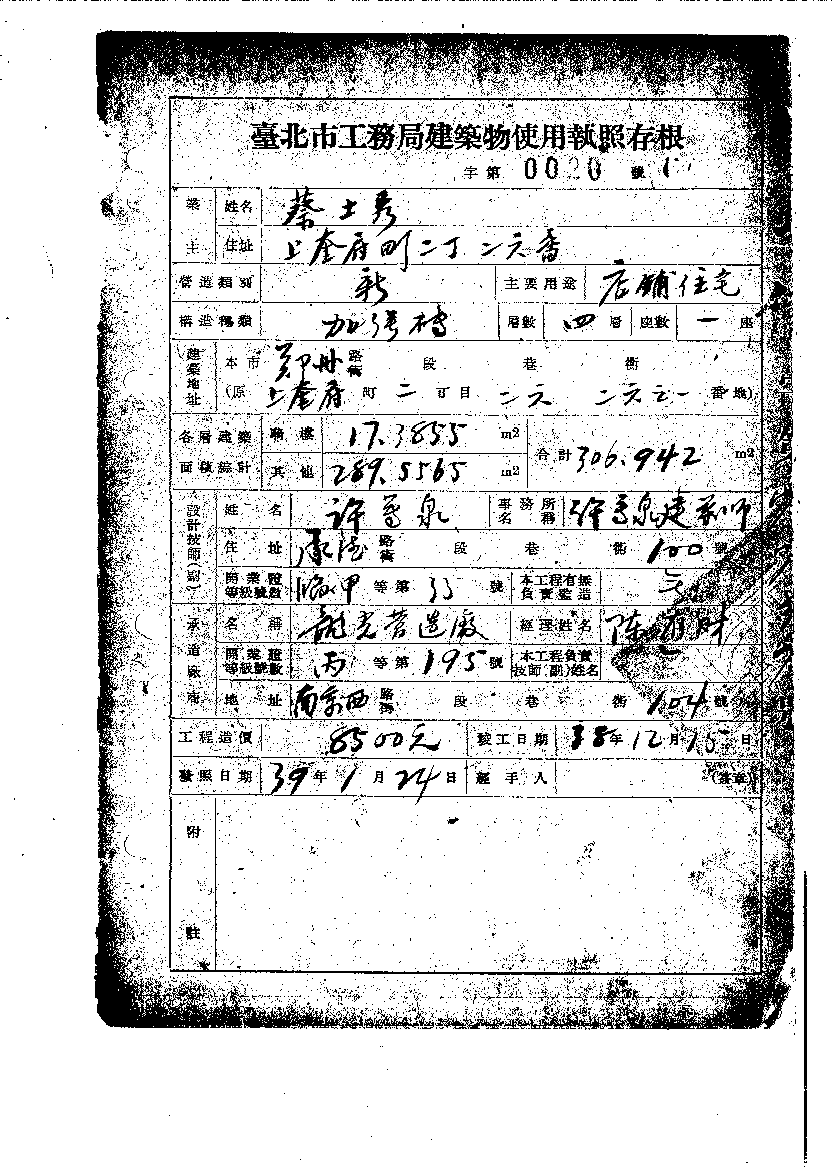 臺北市工務局建築物使用執照存根
字第 0020 號
業主 姓名 蔡士秀
住址 上奎府町二丁二六番
營造類別 新 主要用途 店舖住宅
構造種類 加强磚 層數 四 層 座數 一 座
建築地址 本市 鄭州 路街 段 巷 衖
(原 上奎府 町 二 丁目 二六 二六之一 番地)
各層建築面積綜計 騎樓 17.3855 m2 合計 306.942 m2
其他 289.5565 m2
設計技師(副) 姓名 許 泉 事務所名稱 許 泉建築師
住址 承德 路街 段 巷 衖 100 號
開業證等級號數 臨甲 等第 33 號 本工程有無負責監造
承造廠商 名稱 龍光營造廠 經理姓名 陳 財
開業證等級號數 丙 等第 195 號 本工程負責技師(副)姓名
地址 南京西 路街 段 巷 衖 104 號
工程造價 8500元 竣工日期 38 年 12 月 15 日
發照日期 39 年 1 月 24 日 經手人 (簽章)
附註